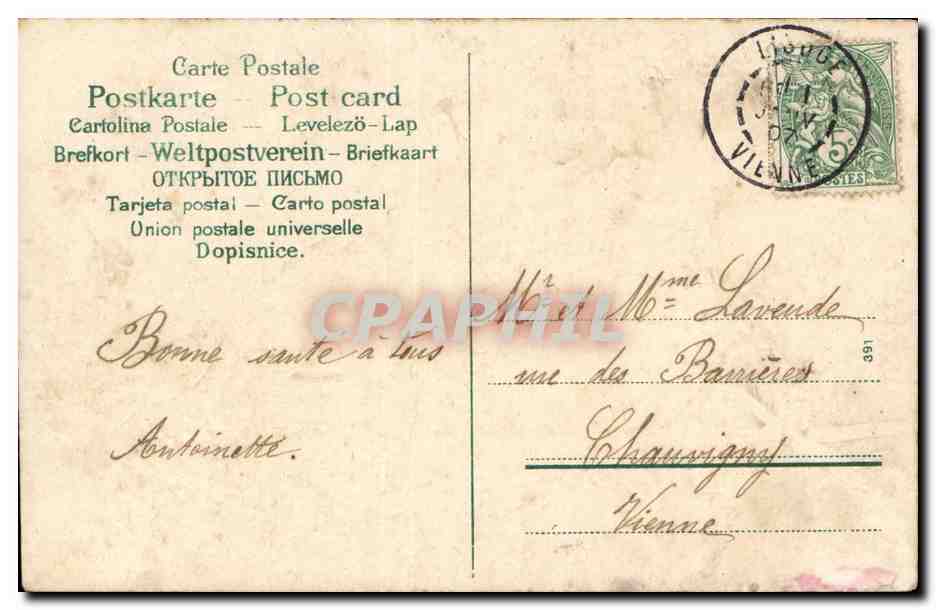 Carte Postale
Postkarte -- Post card
Cartolina Postale -- Levelező-Lap
Brefkort - Weltpostverein - Briefkaart
ОТКРЫТОЕ ПИСЬМО
Tarjeta postal - Carto postal
Union postale universelle
Dopisnice.
Bonne sante à tous
Antoinette.
LIGUGE
VIENNE
5c
POSTES
Mr et Mme Lavende
rue des Barrières
Chauvigny
Vienne
391
CPAPHIL